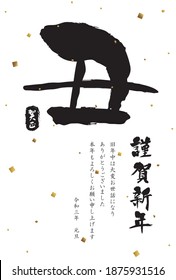 丑
賀正
謹賀新年
旧年中は大変お世話になり
ありがとうございました
本年もよろしくお願い申し上げます
令和三年 元旦
shutterstock.com · 1875931516